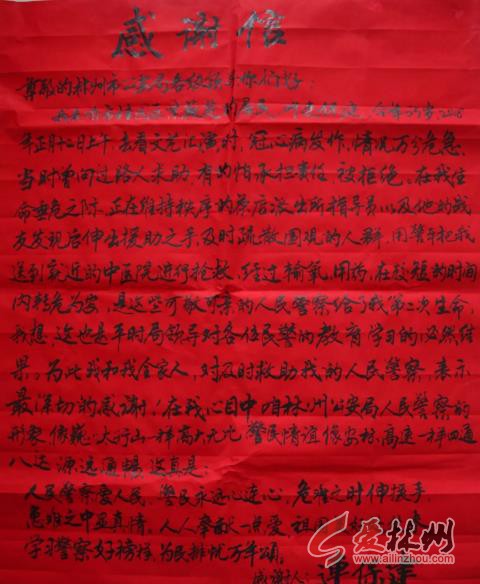 感谢信
尊敬的林州市公安局各级领导你们好:
我是 的居民 今年 岁,
年正月 日上午,去看文艺汇演时,冠心病发作,情况万分危急,
当时曾向过路人求助,有的怕承担责任,被拒绝。在我生
命垂危之际,正在维持秩序的茶店派出所指导员以及他的战
友发现后伸出援助之手,及时疏散围观的人群,用警车把我
送到就近的中医院进行抢救,经过输氧、用药,在较短的时间
内转危为安,是这些可敬可亲的人民警察给了我第二次生命,
我想,这也是平时局领导对各位民警的教育学习的必然结
果。为此我和我全家人,对及时救助我的人民警察,表示
最深切的感谢!在我心目中咱林州公安局人民警察的
形象像巍巍太行山一样高大无比,警民情谊像安林高速一样四通
八达 源远通畅,这真是:
人民警察爱人民,警民永远心连心,危难之时伸援手,
患难之中显真情。人人奉献一点爱,祖国
学习警察好榜样,为民排忧万年颂。
感谢人:
爱林网
www.ailinzhou.com